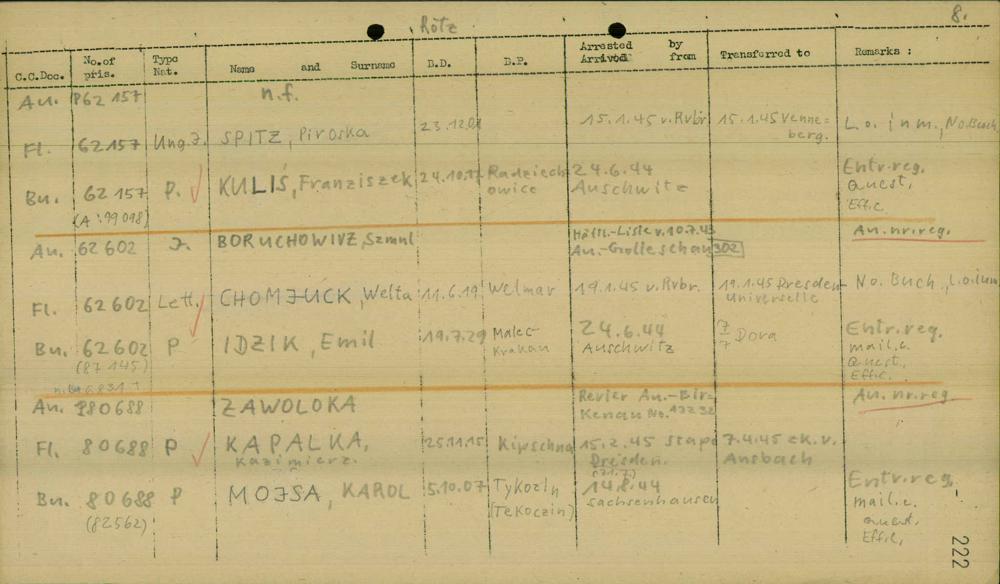 Rötz
8.
C.C.Doc. No.of pris. Type Nat. Name and Surname B.D. B.P. Arrested by Arrived from Transferred to Remarks :
Au. P62 157 n.f.
Fl. 62157 Ung.J. SPITZ, Piroska 23.12.01 15.1.45 v.Rvbr 15.1.45 Venne= berg. L.o. i nm., No.Buch
Bu. 62 157 P. KULIŚ, Franziszek 24.10.17 Radziech owice 24.6.44 Auschwitz Entr.reg. Quest, Effic
(A: 99098)
Au. 62602 J. BORUCHOWIVZ, Szmul Häftl.-Liste v.10.7.43 Au.-Golleschau 302 Au.nr.reg.
Fl. 62602 Lett. CHOMJUCK, Welta 11.6.19 Welmar 19.1.45 v.Rvbr. 19.1.45 Dresden- Universelle No. Buch, L.o.i nm
Bu. 62602 P IDZIK, Emil 19.7.29 Malec- Krakau 24.6.44 Auschwitz 7/7 Dora Entr.reg. mail.c. Quest, Effic.
(87 145)
Au. 980688 ZAWOLOKA Revier Au.-Bir= Kenau No. Au.nr.reg.
Fl. 80688 P KAPALKA, Kazimierz. 25.11.15 Kipschna 15.2.45 Stapo Dresden. 7.4.45 zK.v. Ansbach
Bu. 80688 P MOJSA, KAROL 5.10.07 Tykozin (Tekoczin) 14.8.44 Sachsenhausen Entr.reg. mail.c. Quest, Effic,
(82562)
222